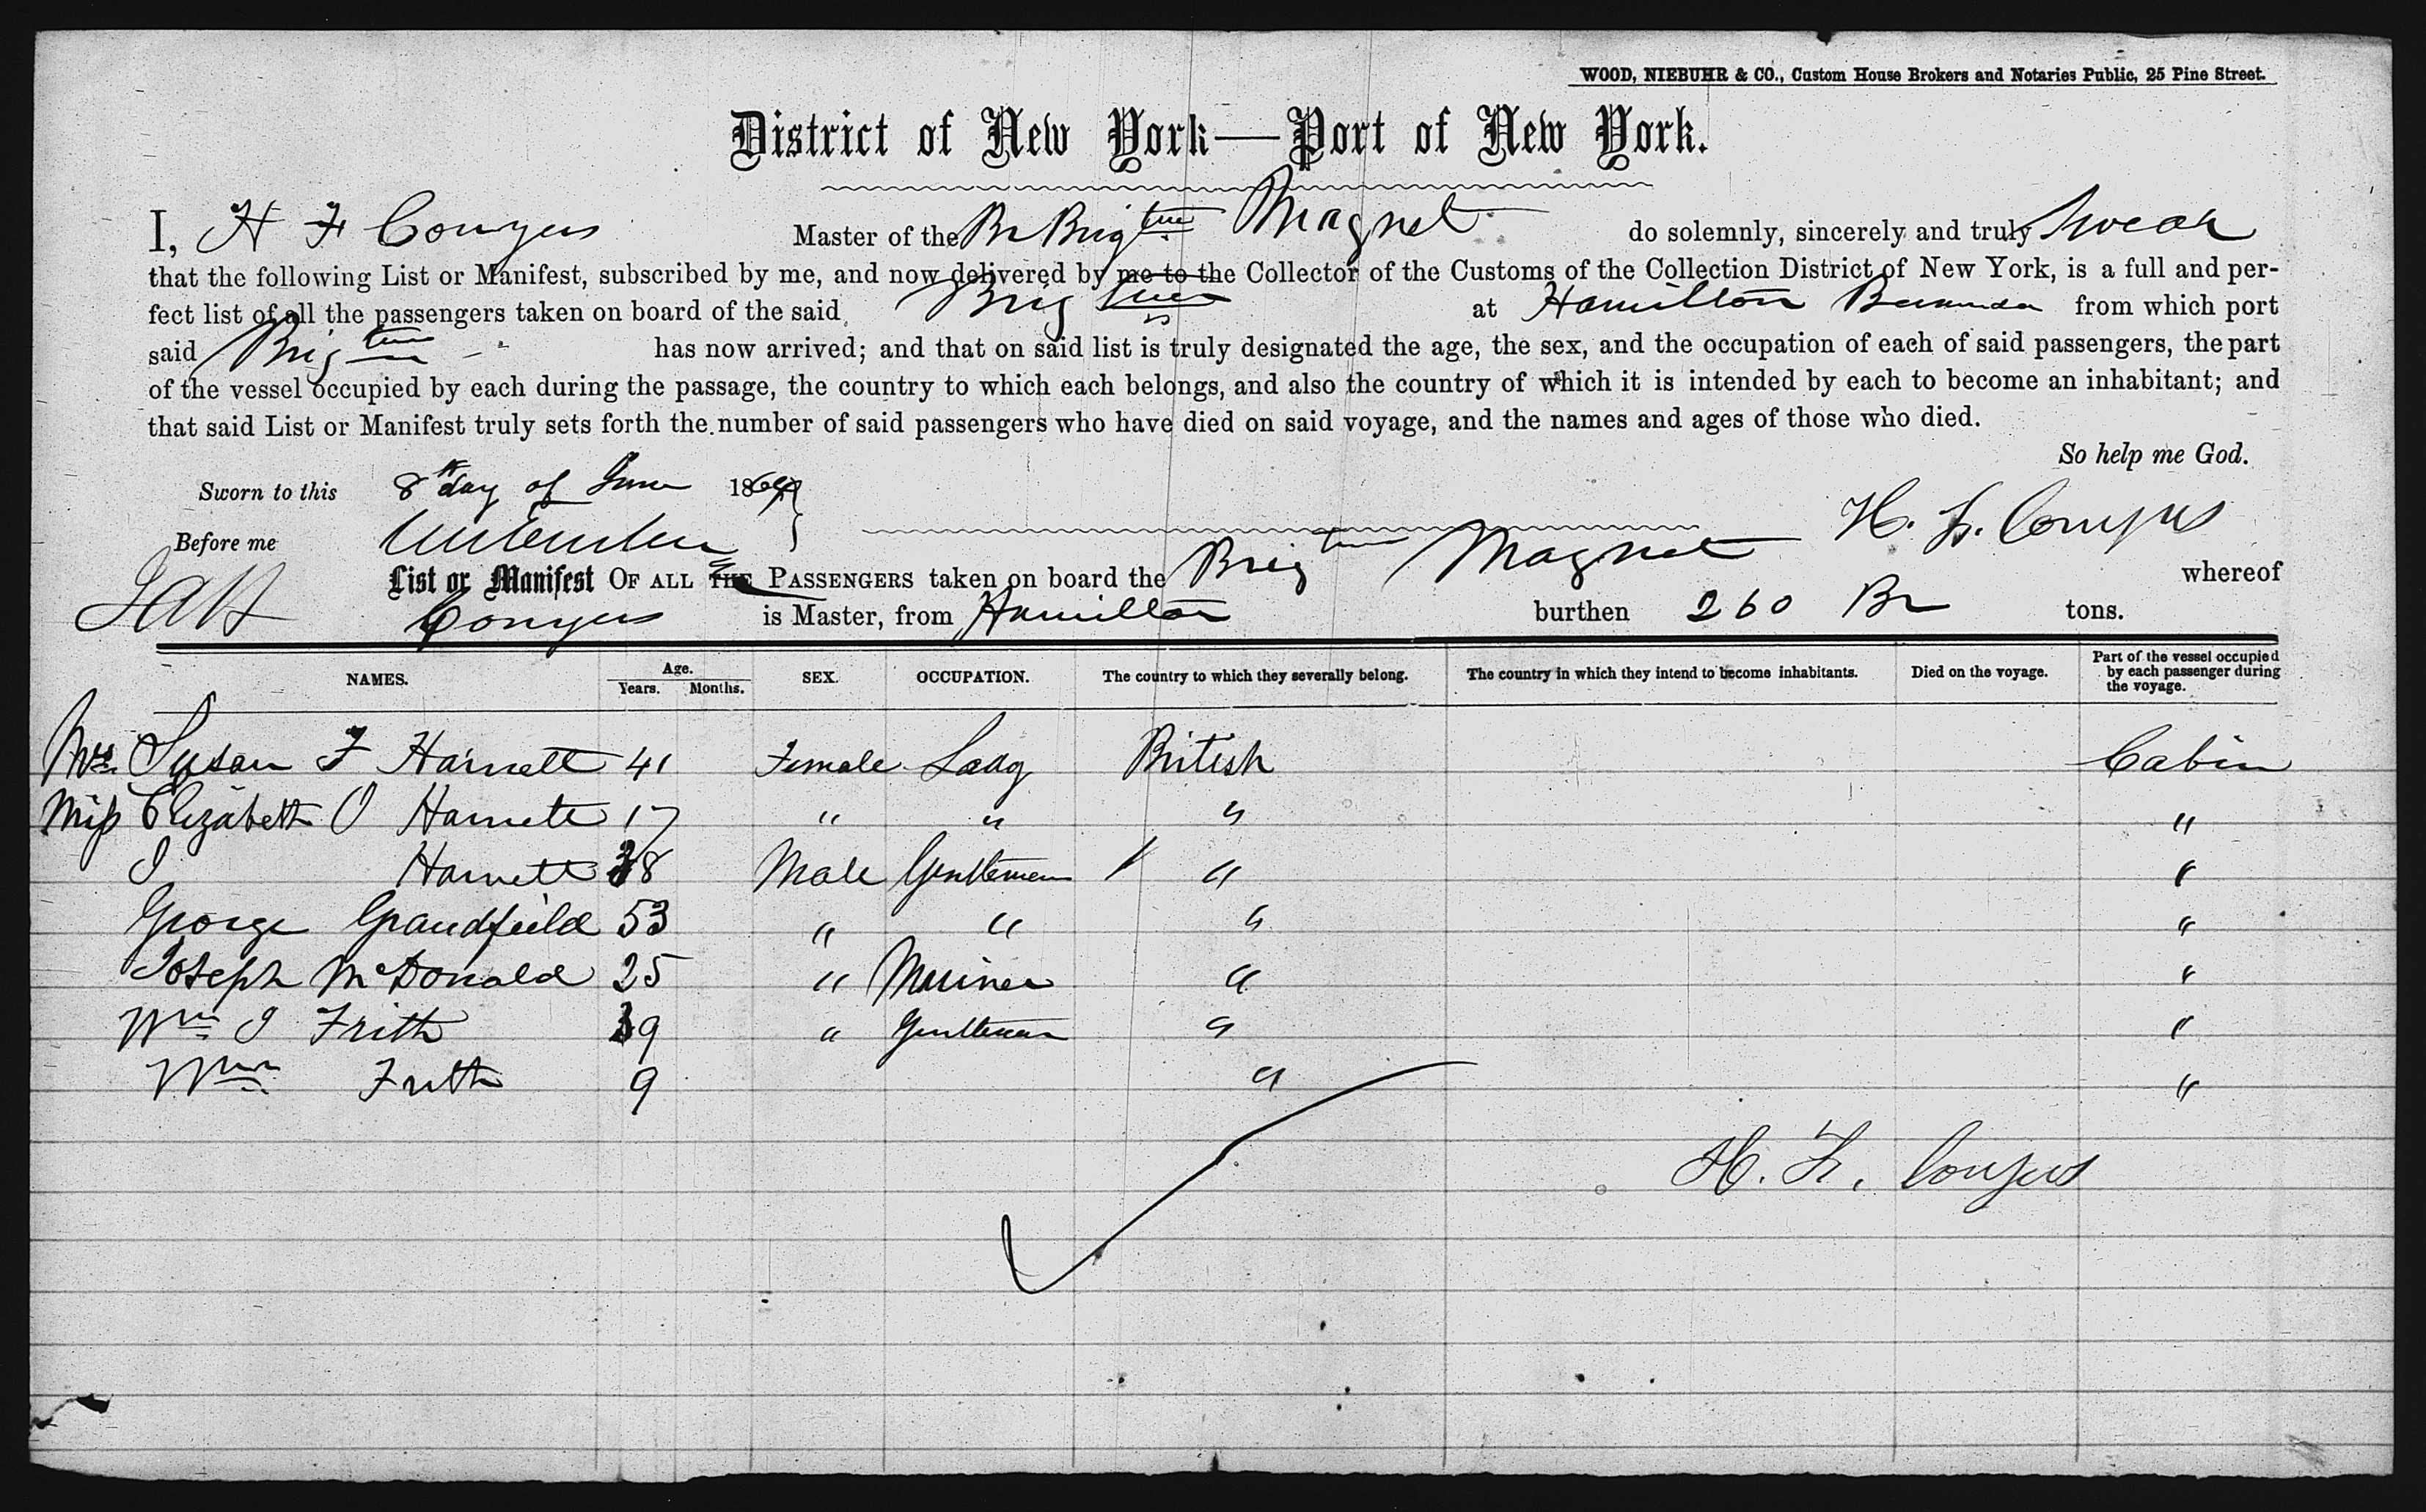 WOOD, NIEBUHR & CO., Custom House Brokers and Notaries Public, 25 Pine Street.
District of New York—Port of New York.
I, H F Conyers Master of the Br Brigtne Magnet do solemnly, sincerely and truly swear
that the following List or Manifest, subscribed by me, and now delivered by me to the Collector of the Customs of the Collection District of New York, is a full and per-
fect list of all the passengers taken on board of the said Brigtne at Hamilton Bermuda from which port
said Brigtne has now arrived; and that on said list is truly designated the age, the sex, and the occupation of each of said passengers, the part
of the vessel occupied by each during the passage, the country to which each belongs, and also the country of which it is intended by each to become an inhabitant; and
that said List or Manifest truly sets forth the number of said passengers who have died on said voyage, and the names and ages of those who died.
So help me God.
Sworn to this 8th day of June 1869
Before me H. F. Conyers
List or Manifest OF ALL THE PASSENGERS taken on board the Brigtne Magnet whereof
Conyers is Master, from Hamilton burthen 260 Br tons.
NAMES. Age. Years. Months. SEX. OCCUPATION. The country to which they severally belong. The country in which they intend to become inhabitants. Died on the voyage. Part of the vessel occupied by each passenger during the voyage.
Mrs. Susan F Harnett 41 Female Lady British Cabin
Miss Elizabeth O Harnett 17 " " " "
J Harnett 38 Male Gentleman " "
George Grandfield 53 " " " "
Joseph McDonald 25 " Mariner " "
Wm J Frith 39 " Gentleman " "
Wm Frith 9 " "
H. F. Conyers